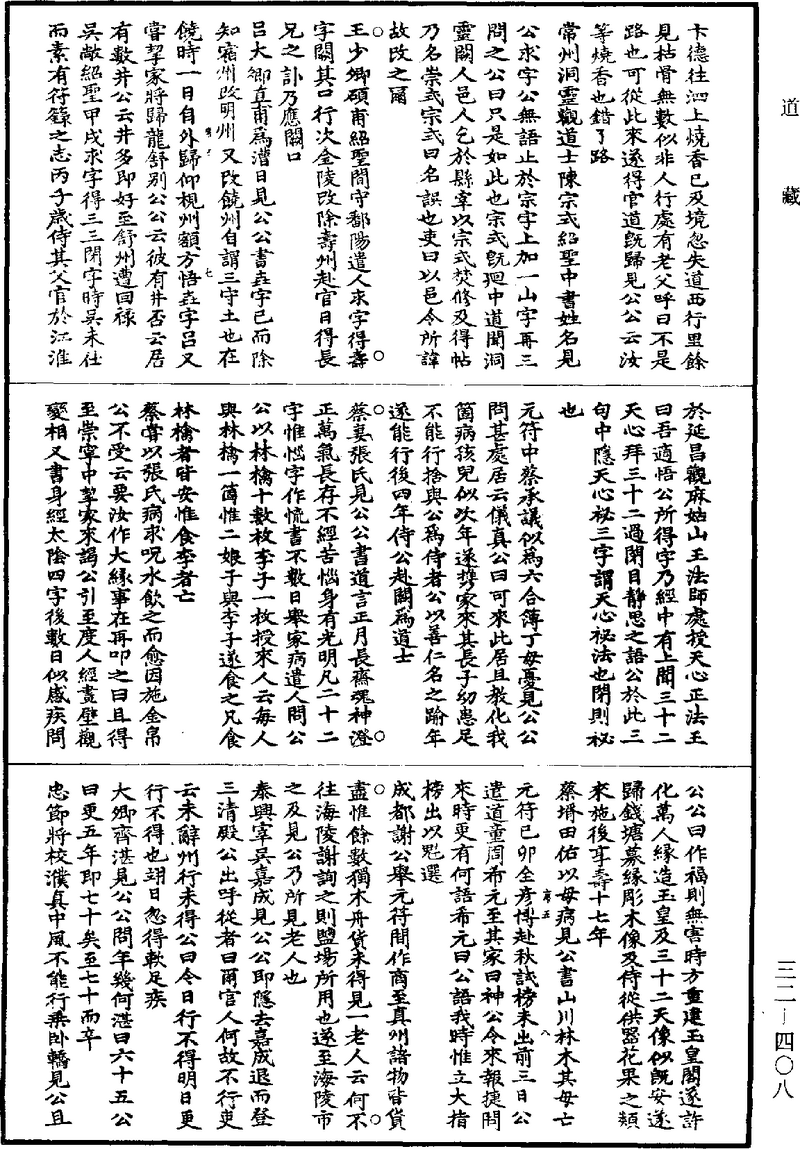 道藏
卞德往泗上燒香已及境忽失道西行里餘
見枯骨無數似非人行處有老父呼曰不是
路也可從此來遂得官道既歸見公公云汝
等燒香也錯了路
常州洞靈觀道士陳宗式紹聖中書姓名見
公求字公無語止於宗字上加一山字再三
問之公曰只是如此也宗式既迴中道聞洞
靈闕人邑人乞於縣宰以宗式焚修及得帖
乃名崇式宗式曰名誤也吏曰以邑令所諱
故改之爾
王少卿碩甫紹聖間守鄱陽遣人求字得壽
字闕其口行次金陵改除壽州赴官日得長
兄之訃乃應闕口
呂大卿直甫為漕日見公公書垚字已而除
知宿州改明州又改饒州自謂三守土也在
饒時一日自外歸仰視州額方悟垚字呂又
嘗挈家將歸龍舒别公公云彼有井否云居
有數井公云井多即好至舒州遭回祿
吳敵紹聖甲戌求字得三三閉字時吳未仕
而素有符籙之志丙子歲侍其父官於江淮
於延昌觀麻姑山王法師處授天心正法王
曰吾適悟公所得字乃經中有上聞三十二
天心拜三十二過閉目靜思之語公於此三
句中隱天心祕三字謂天心祕法也閉則祕
也
元符中蔡承議似為六合簿丁母憂見公公
問甚處居云儀真公曰可來此居且教化我
箇病孩兒似次年遂挈家來其長子幼患足
不能行捨與公為侍者公以善仁名之踰年
遂能行後四年侍公赴闕為道士
蔡妻張氏見公公書道言正月長齋魂神澄
正萬氣長存不經苦惱身有光明凡二十二
字惟惱字作慌書不數日舉家病遣人問公
公以林檎十數枚李子一枚授來人云每人
與林檎一箇惟二娘子與李子遂食之凡食
林檎者皆安惟食李者亡
蔡嘗以張氏病求呪水飲之而愈因施金帛
公不受云要汝作大緣事在再叩之曰且得
至崇寧中挈家來謁公引至度人經畫壁觀
變相又書身經太陰四字後數日似感疾問
公公曰作福則無害時方重建玉皇閣遂許
化萬人緣造玉皇及三十二天像似既安遂
歸錢塘募緣彫木像及侍從供器花果之類
來施後享壽十七年
蔡壻田佑以母病見公書山川林木其母亡
元符己卯全彥博赴秋試榜未出前三日公
遣道童周希元至其家曰神公令來報捷問
來時更有何語希元曰公語我時惟立大指
榜出以魁選
成都謝公舉元符間作商至真州諸物皆貨
盡惟餘數獨木舟貨未得見一老人云何不
往海陵謝詢之則鹽場所用也遂至海陵市
之及見公乃所見老人也
泰興宰吳嘉成見公公即隱去嘉成退而登
三清殿公出呼從者曰爾官人何故不行吏
云未辭州行未得公曰今日行不得明日更
行不得也翊日忽得軟足疾
大卿齊湛見公公問年幾何湛曰六十五公
曰更五年即七十矣至七十而卒
忠節將校濮真中風不能行乘卧轎見公且
三二—四〇八